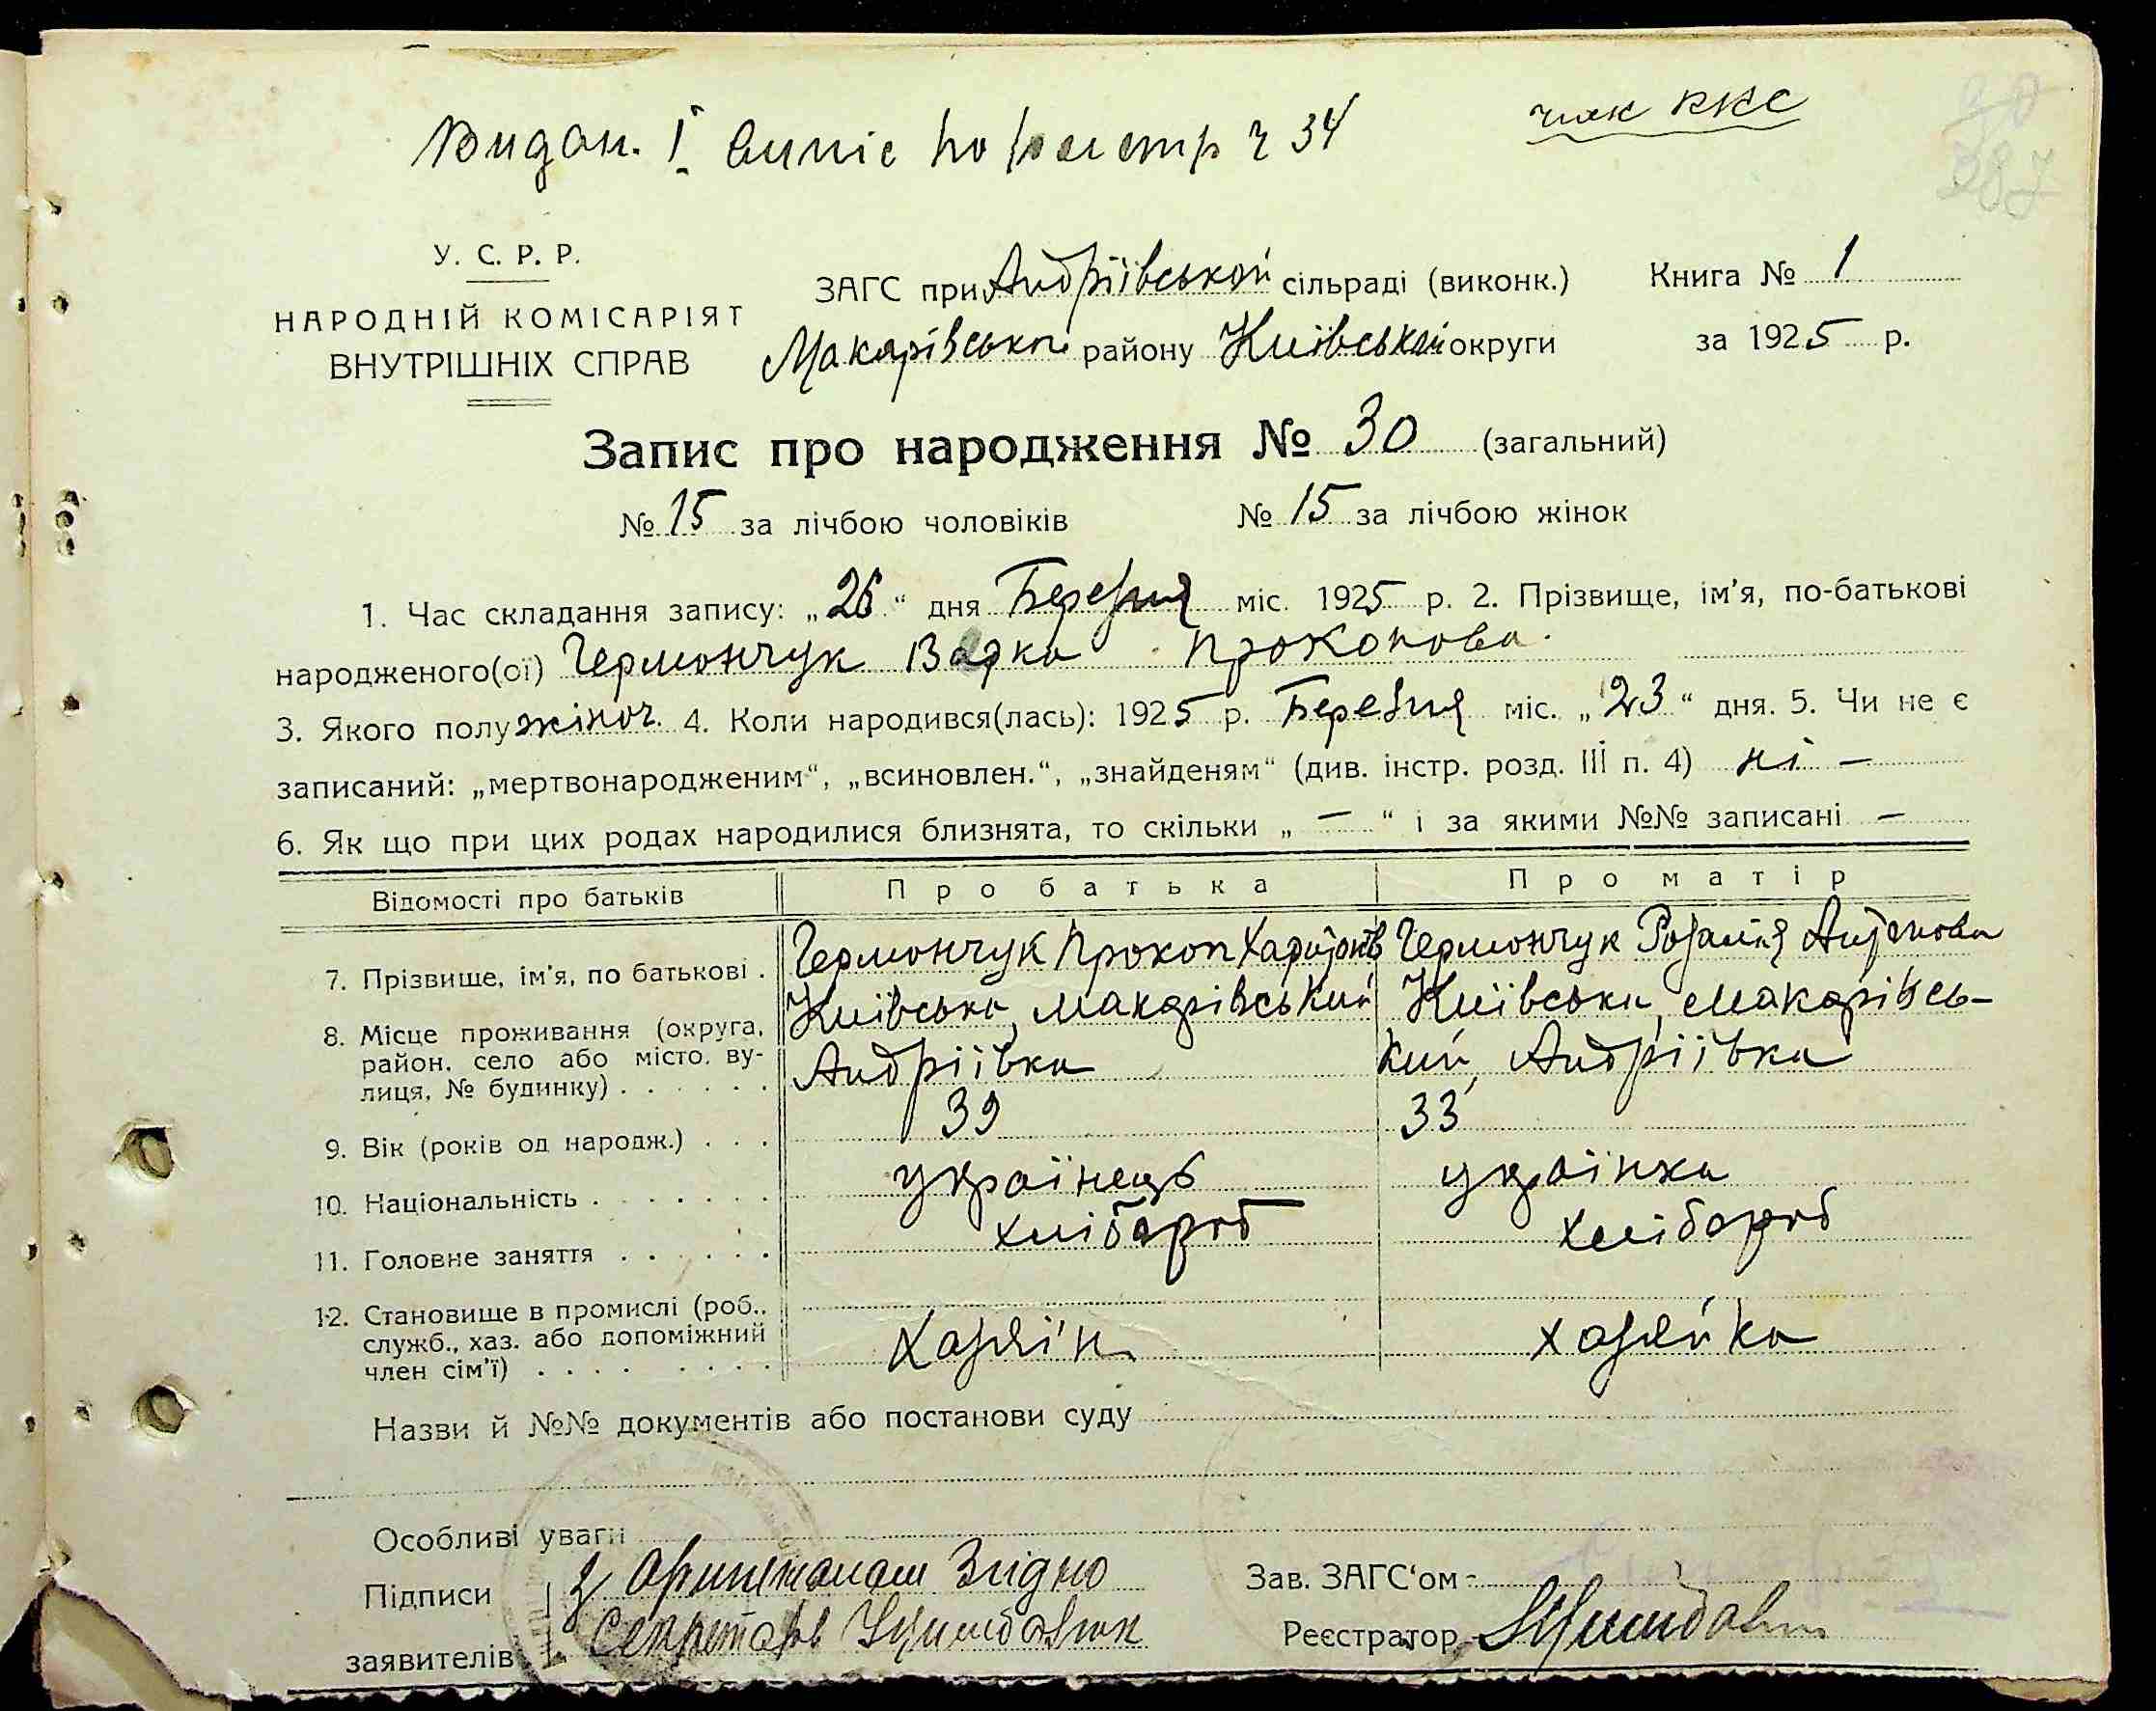 Видан. І випис по реєстр ч 34
ККС
387
У. С. Р. Р.
НАРОДНІЙ КОМІСАРІЯТ
ВНУТРІШНІХ СПРАВ
ЗАГС при Андріївській сільраді (виконк.)
Макарівськ. району Київськой округи
Книга № 1
за 1925 р.
Запис про народження № 30 (загальний)
№ 15 за лічбою чоловіків № 15 за лічбою жінок
1. Час складання запису: „26“ дня Березня міс. 1925 р. 2. Прізвище, ім’я, по-батькові
народженого(ої) Гермончук Варка Прокопова.
3. Якого полу жіноч. 4. Коли народився(лась): 1925 р. Березня міс. „23“ дня. 5. Чи не є
записаний: „мертвонародженим“, „всиновлен.“, „знайденям“ (див. інстр. розд. III п. 4) ні —
6. Як що при цих родах народилися близнята, то скільки „ — “ і за якими №№ записані —
Відомості про батьків Про батька Про матір
7. Прізвище, ім’я, по батькові . Гермончук Прокоп Харитонів Гермончук Розалія Антонова
8. Місце проживання (округа, Київська, Макарівський Київська, Макарівсь-
район, село або місто, ву- Андріївка кий, Андріївка
лиця, № будинку) . . . . . .
9. Вік (років од народж.) . . . 39 33
10. Національність . . . . . . . українець українка
11. Головне заняття . . . . . . хлібороб хлібороб
12. Становище в промислі (роб.,
служб., хаз. або допоміжний хазяїн хазяйка
член сім’ї) . . . . . . . .
Назви й №№ документів або постанови суду
Особливі уваги
Підписи З оригіналом згідно
заявителів Секретар
Зав. ЗАГС‘ом
Реєстратор